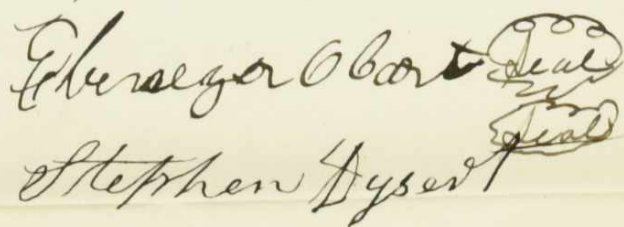 Ebenezer Obart Seal
Stephen Dysert Seal